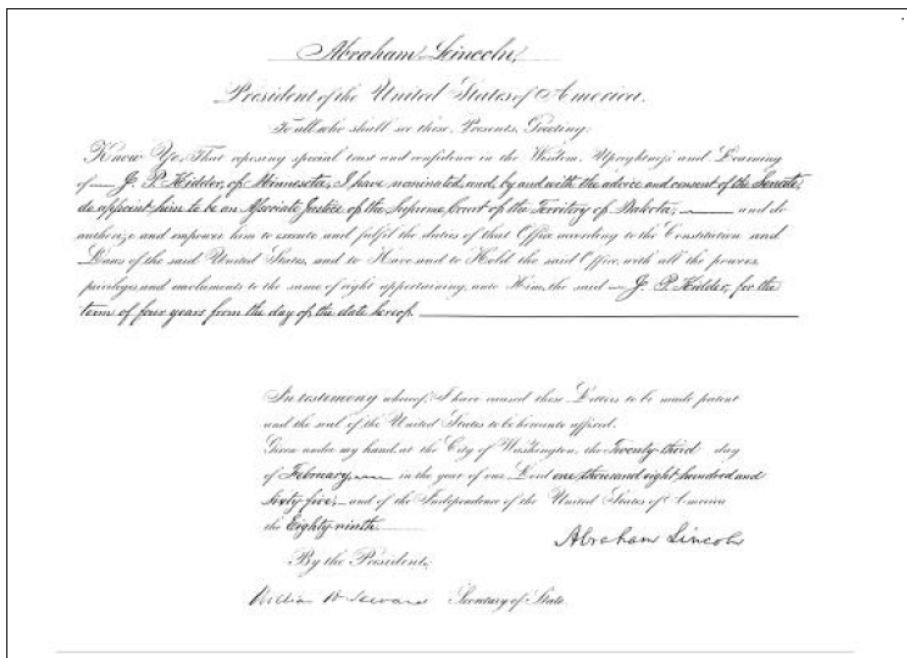 Abraham Lincoln,
President of the United States of America.
To all who shall see these Presents, Greeting:
Know Ye, That reposing special trust and confidence in the Wisdom, Uprightness and Learning
of — J. P. Kidder, of Minnesota, I have nominated, and, by and with the advice and consent of the Senate,
do appoint him to be an Associate Justice of the Supreme Court of the Territory of Dakota; — and do
authorize and empower him to execute and fulfil the duties of that Office according to the Constitution and
Laws of the said United States, and to Have and to Hold the said Office, with all the powers,
privileges and emoluments to the same of right appertaining, unto Him, the said — J. P. Kidder, for the
term of four years from the day of the date hereof.
In testimony whereof, I have caused these Letters to be made patent
and the seal of the United States to be hereunto affixed.
Given under my hand, at the City of Washington, the Twenty-third day
of February, in the year of our Lord one thousand eight hundred and
Sixty five; and of the Independence of the United States of America
the Eighty-ninth.
Abraham Lincoln
By the President:
William H Seward Secretary of State.